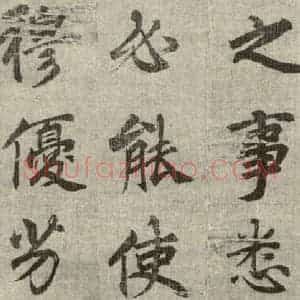 之事悉
必能使
穆優劣